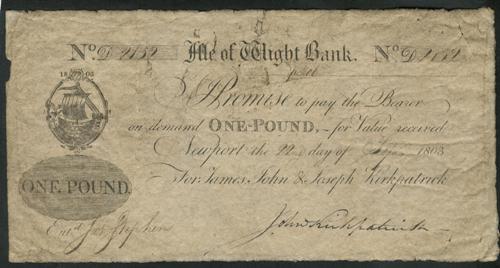 No. D 2152 Isle of Wight Bank. No. D 2152
18 03
I Promise to pay the Bearer
on demand ONE-POUND, for Value received
Newport the 22 day of 1803
ONE POUND.
For James, John & Joseph Kirkpatrick
Entd. Jas Stephen
John Kirkpatrick